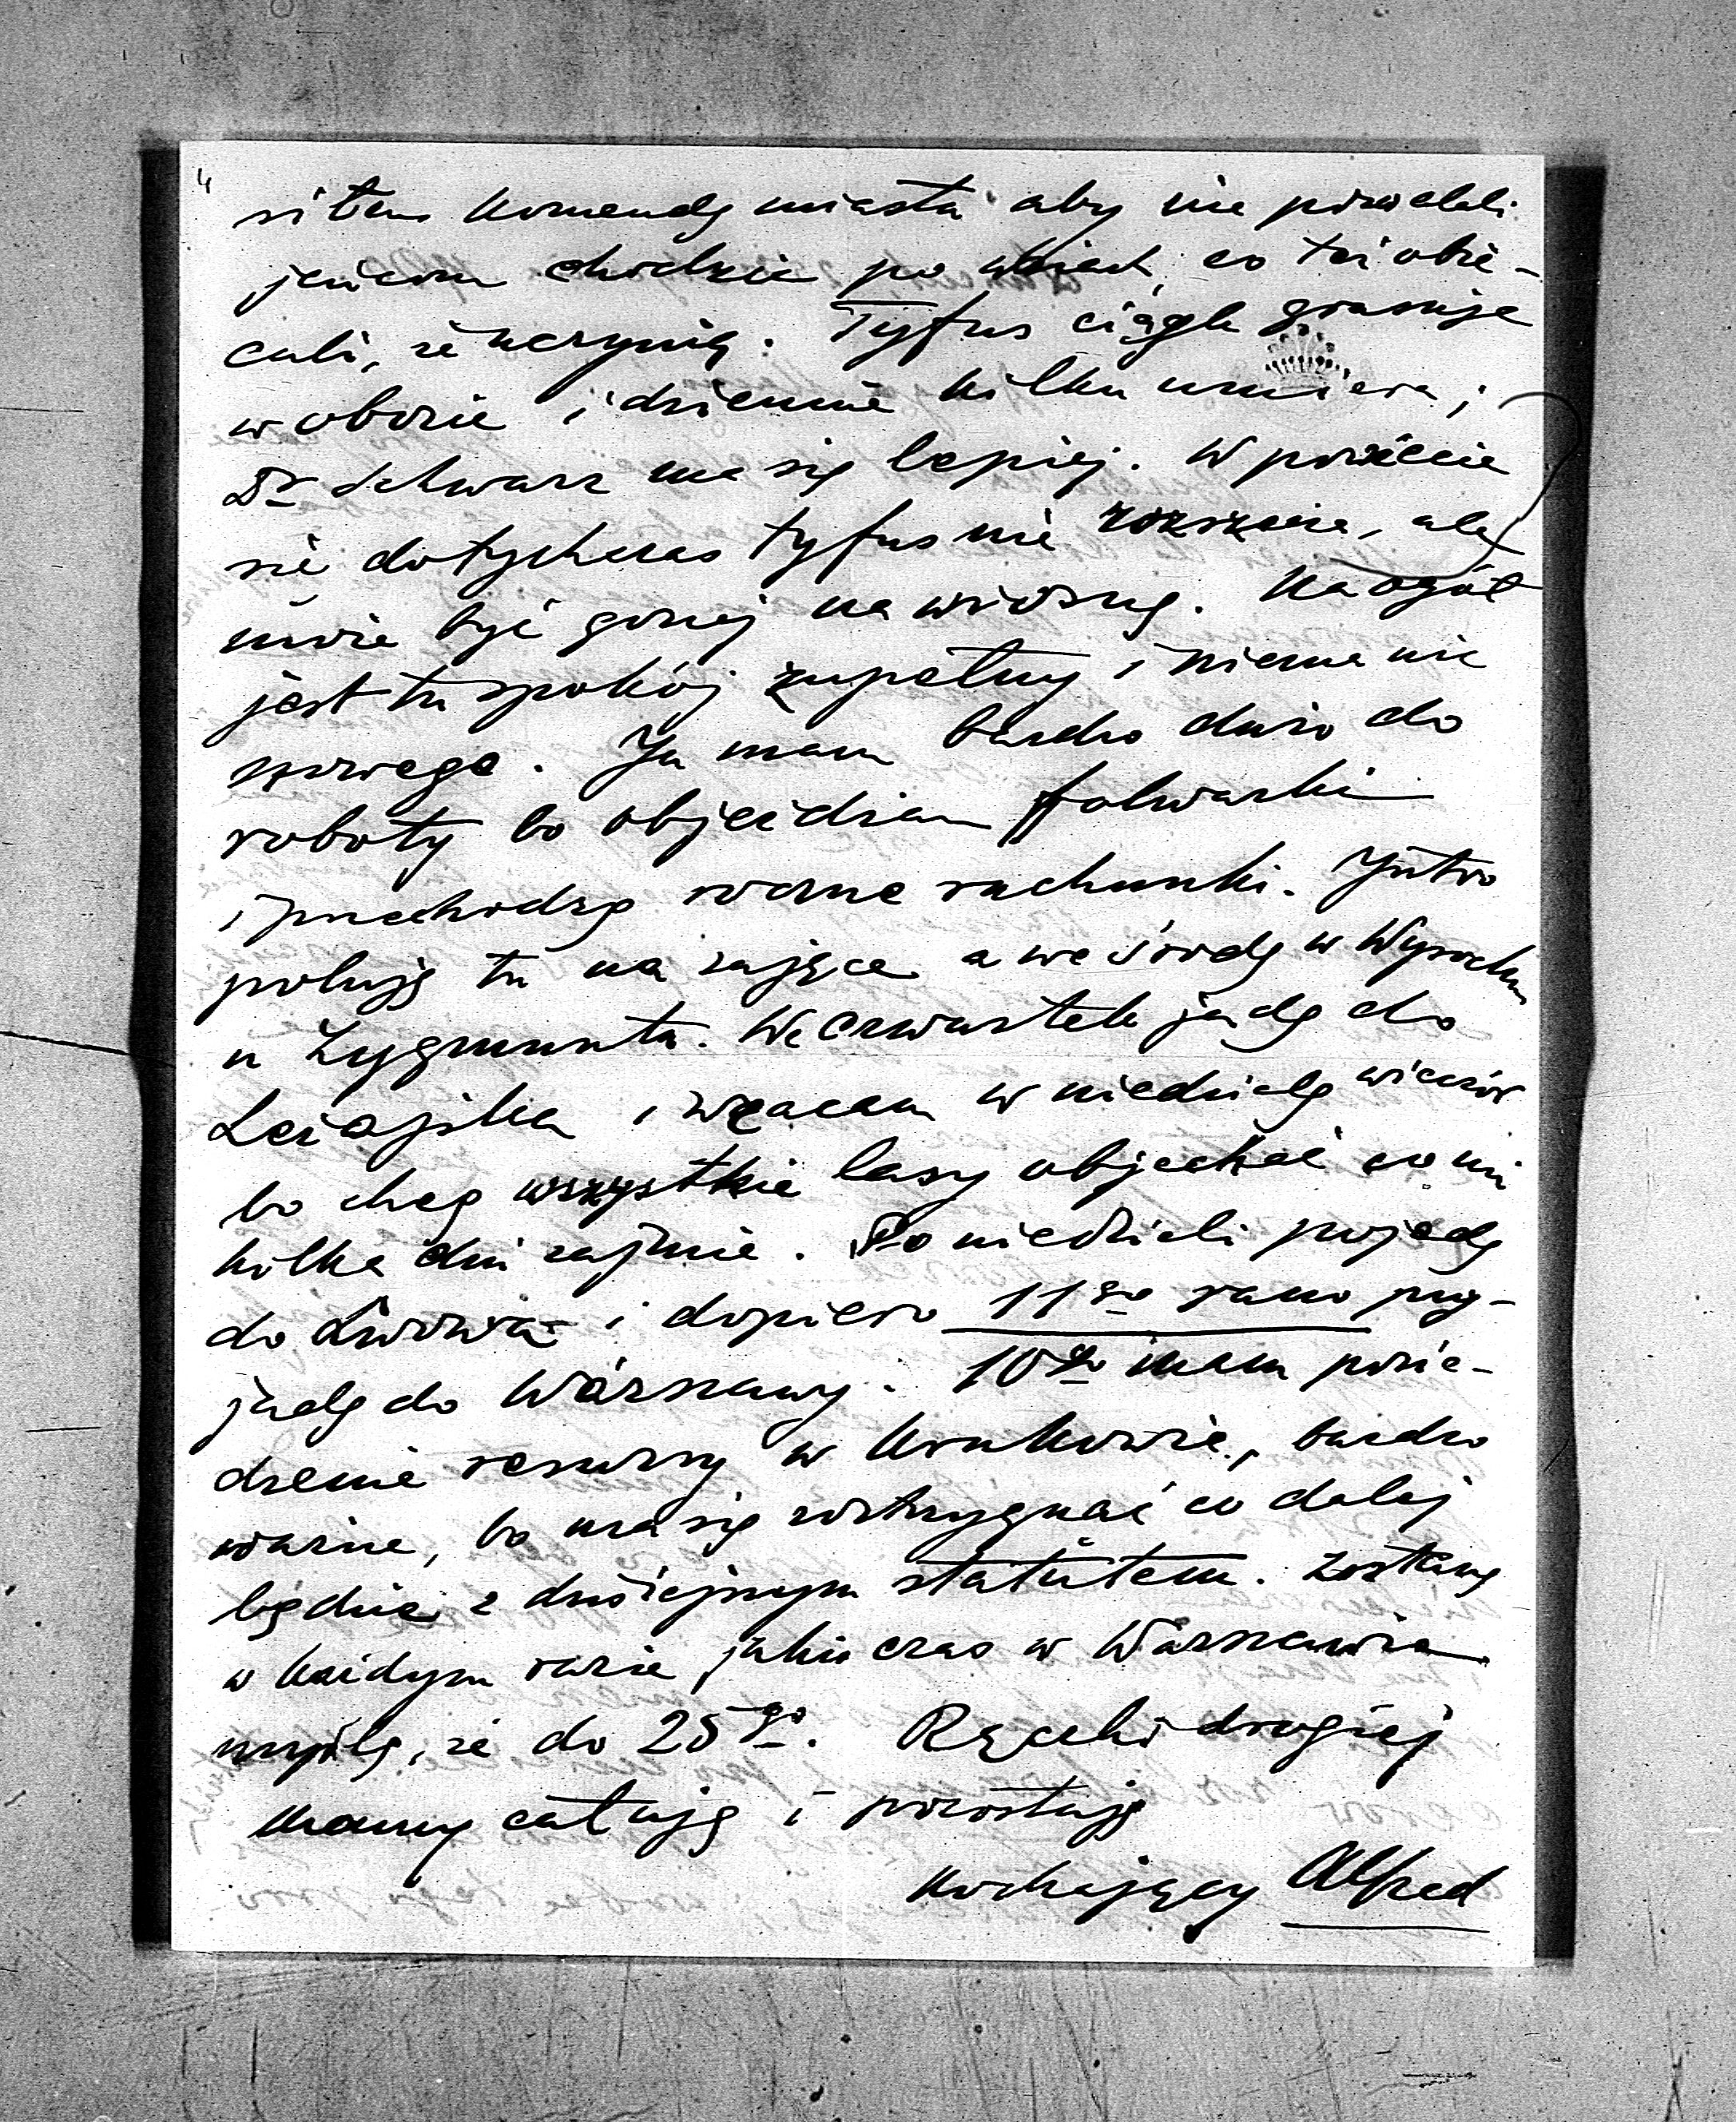 4
siłem komendę miasta aby nie pozwalali
jeńcom chodzić po wsiach, co też obie-
cali, że uczynią. Tyfus ciągle grasuje
w obozie i dziennie kilku umiera;
Dr Schwarz ma się lepiej. W powiecie
się dotychczas tyfus nie rozszerza, ale
może być gorzej na wiosnę. Na ogół
jest tu spokój zupełny i niema nic
nowego. Ja mam bardzo dużo do
roboty bo objeżdżam folwarki
i przechodzę roczne rachunki. Jutro
poluję tu na zające a we środę w Wysocku
u Zygmunta. We czwartek jadę do
Leżajska i wracam w niedzielę wieczór
bo chcę wszystkie lasy objechać co mi
kilka dni zajmie. Po niedzieli pojadę
do Lwowa i dopiero 11go rano przy-
jadę do Warszawy. 10go mam posie-
dzenie resursy w Krakowie, bardzo
ważne, bo ma się rozstrzygnąć co dalej
będzie z dzisiejszym statutem. Zostanę
w każdym razie jakiś czas w Warszawie
myślę, że do 25go. Rączki drogiej
Mamy całuję i pozostaję
kochający Alfred